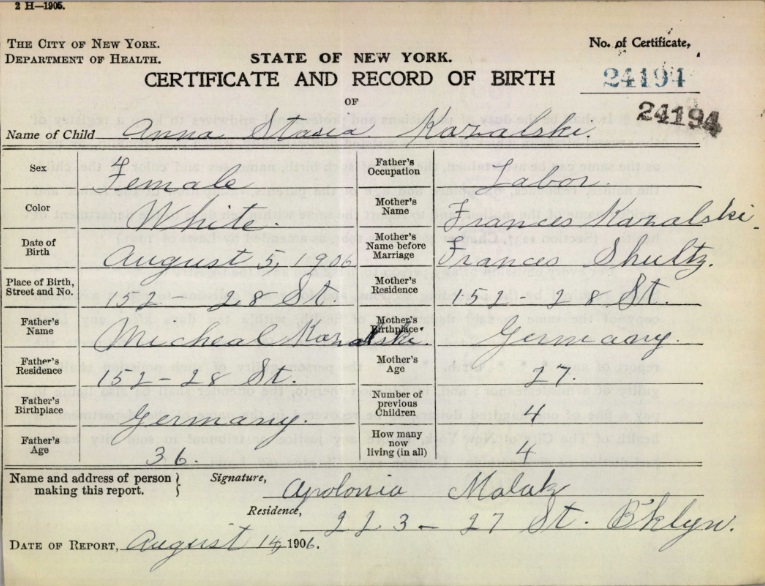 2 H—1905.
THE CITY OF NEW YORK.
DEPARTMENT OF HEALTH.
STATE OF NEW YORK.
No. of Certificate,
CERTIFICATE AND RECORD OF BIRTH
24194
OF
24194
Name of Child Anna Stasia Kozalski.
Sex Female
Father's Occupation Labor
Color White.
Mother's Name Frances Kozalski.
Date of Birth August 5, 1906
Mother's Name before Marriage Frances Shultz.
Place of Birth, Street and No. 152 - 28 St.
Mother's Residence 152 - 28 St.
Father's Name Micheal Kozalski.
Mother's Birthplace Germany.
Father's Residence 152 - 28 St.
Mother's Age 27.
Father's Birthplace Germany.
Number of previous Children 4
Father's Age 36.
How many now living (in all) 4
Name and address of person making this report.
Signature, Apolonia Malak
Residence, 223 - 27 St. B'klyn.
DATE OF REPORT, August 14, 1906.